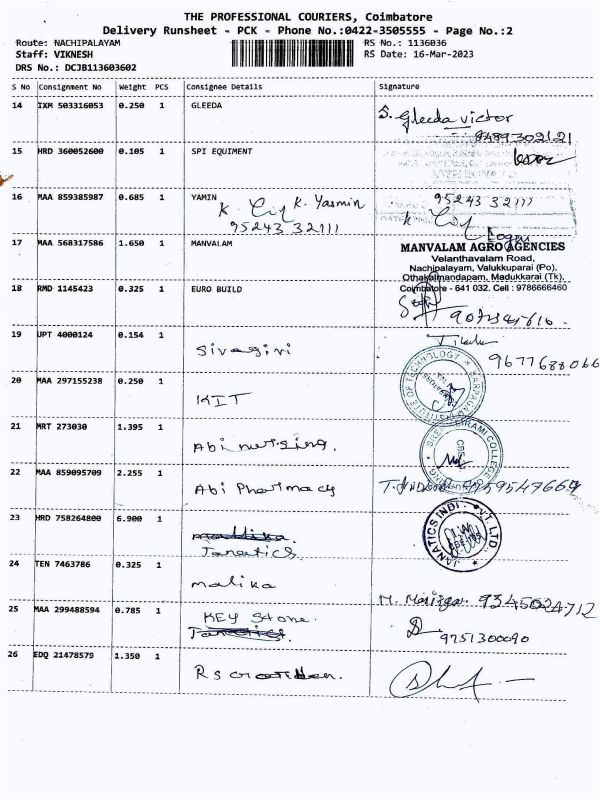 THE PROFESSIONAL COURIERS, Coimbatore
Delivery Runsheet - PCK - Phone No.:0422-3505555 - Page No.:2
Route: NACHIPALAYAM
Staff: VIKNESH
DRS No.: DCJB113603602
RS No.: 1136036
RS Date: 16-Mar-2023
S No Consignment No Weight PCS Consignee Details Signature
14 IXM 503316053 0.250 1 GLEEDA
S. Gleeda victor
8489302121
15 HRD 360052600 0.105 1 SPI EQUIMENT
16 MAA 859385987 0.685 1 YAMIN
K. Yasmin
95243 32111
95243 32111
17 MAA 568317586 1.650 1 MANVALAM
MANVALAM AGRO AGENCIES
Velanthavalam Road,
Nachipalayam, Valukkuparai (Po),
Othakalmandapam, Madukkarai (Tk),
Coimbatore - 641 032. Cell : 9786666460
18 RMD 1145423 0.325 1 EURO BUILD
19 UPT 4000124 0.154 1 Sivagiri
9677688066
20 MAA 297155238 0.250 1 KIT
21 MRT 273030 1.395 1 Abi nursing.
22 MAA 859095709 2.255 1 Abi Pharmacy
23 HRD 758264800 6.900 1 Janatics
JANATICS INDI PVT. LTD.
24 TEN 7463786 0.325 1 malika
9345024712
25 MAA 299488594 0.785 1 KEY Stone.
9751300090
26 EDQ 21478579 1.350 1 Rs